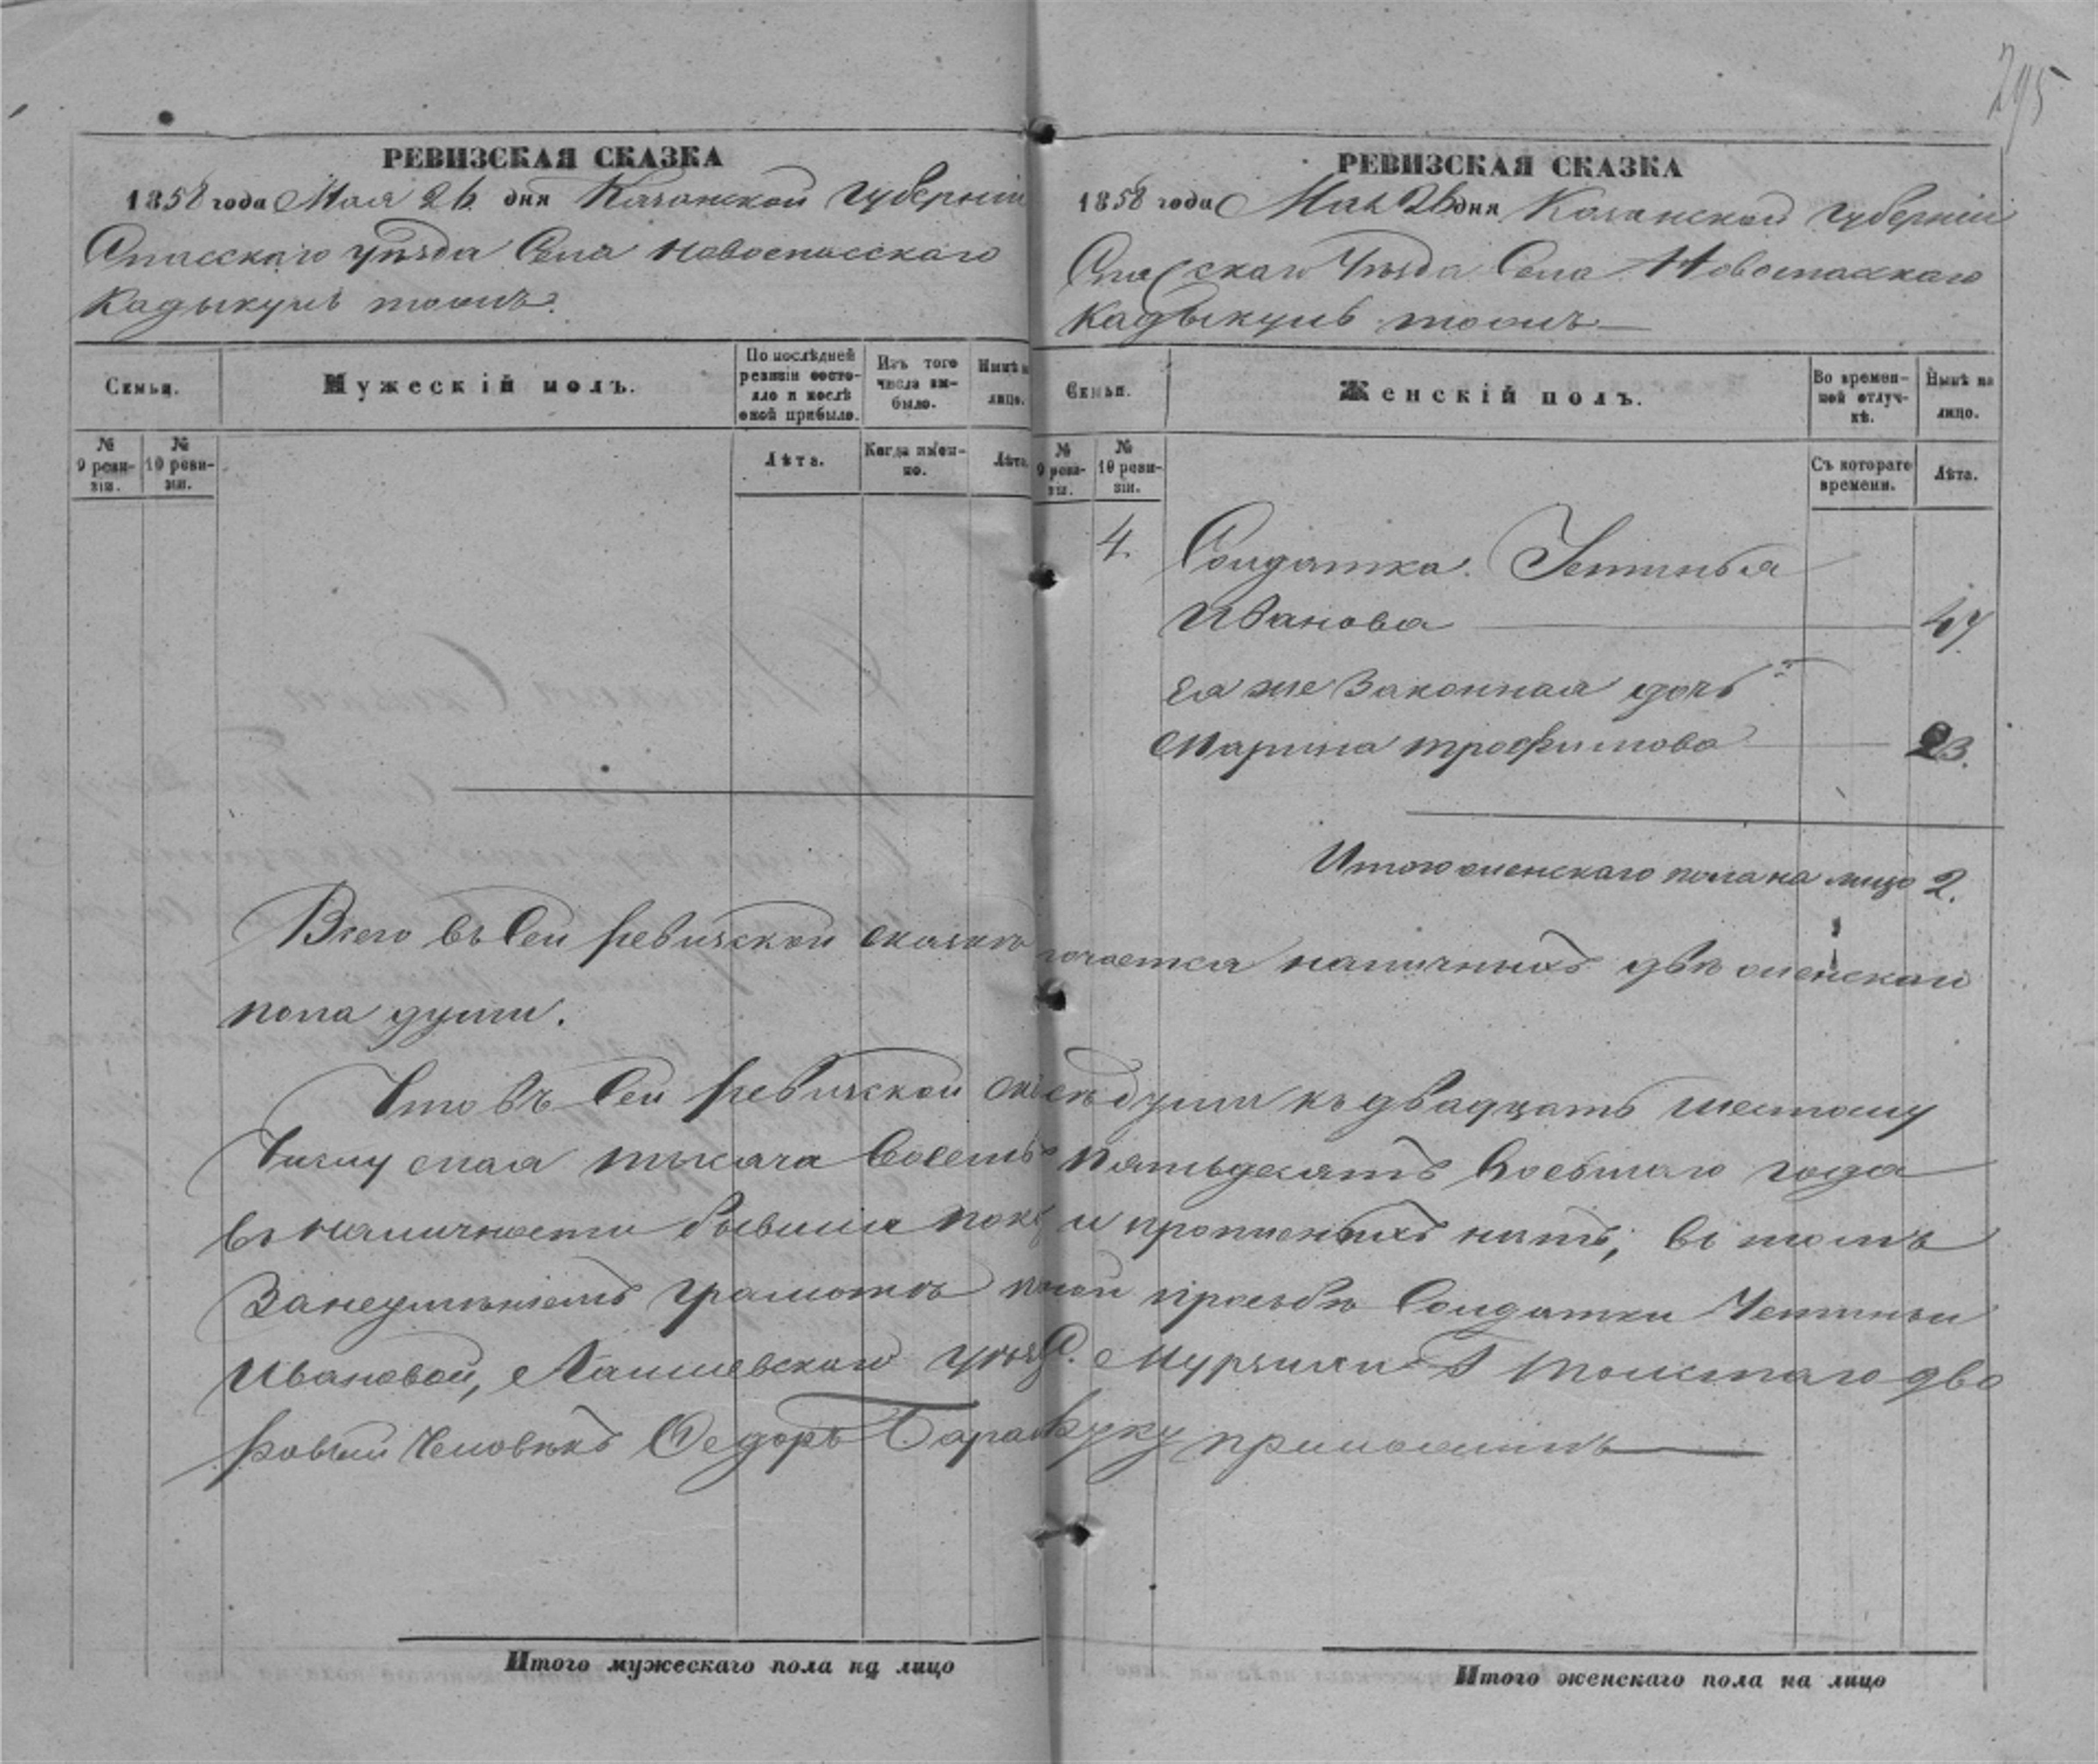 295
РЕВИЗСКАЯ СКАЗКА
1858 года Мая 26 дня Казанской губерніи
Спасскаго уѣзда Села Новоспасскаго
Кадыкуль тожъ.
Семьи.
Мужескій полъ.
По послѣдней ревизіи состояло и послѣ оной прибыло.
Изъ того числа выбыло.
Нынѣ на лицо.
№ 9 ревизіи.
№ 10 ревизіи.
Лѣта.
Когда именно.
Лѣта.
РЕВИЗСКАЯ СКАЗКА
1858 года Мая 26 дня Казанской губерніи
Спасскаго Уѣзда Села Новоспасскаго
Кадыкуль тожъ
Семьи.
Женскій полъ.
Во временной отлучкѣ.
Нынѣ на лицо.
№ 9 ревизіи.
№ 10 ревизіи.
Съ котораго времени.
Лѣта.
4. Солдатка Устинья
Иванова 47
Ея же Законная дочь
Марина трофимова 23.
Итого женскаго пола на лицо 2.
Всего въ Сей ревизской сказкѣ наличныхъ двѣ женскаи
пола души.
Что въ Сей ревизской души къ двадцать шестому
Числу мая тысяча Восемь пятьдесятъ Восьмаго года
въ наличности бывшія и прописныхъ нитъ, въ томъ
За неумѣніемъ грамотѣ прозьбѣ Солдатки Устиньи
Ивановой, Лаишевскаго Мурзихи Толстаго дво
ровый Человѣкъ Федоръ руку приложилъ
Итого мужескаго пола на лицо
Итого женскаго пола на лицо